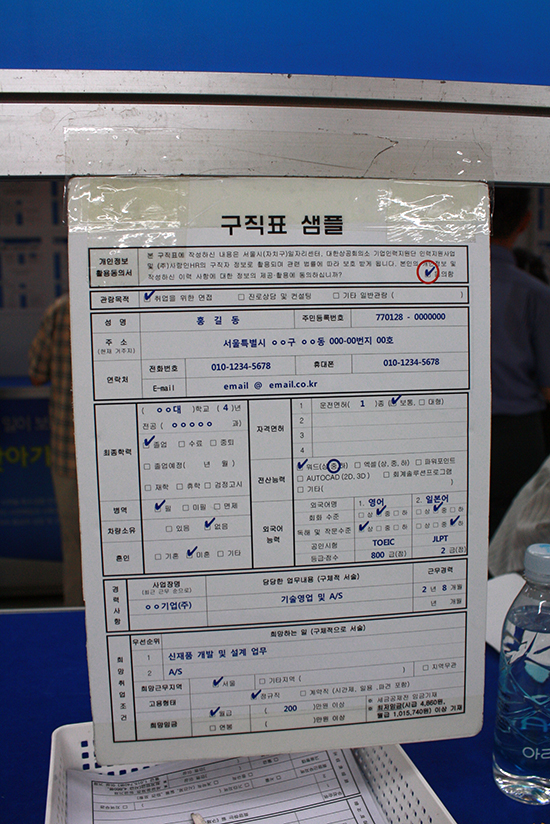 구직표 샘플
개인정보 활용동의서
본 구직표에 작성하신 내용은 서울시(자치구)일자리센터, 대한상공회의소 기업인력지원단 인력지원사업
및 (주)사람인HR의 구직자 정보로 활용되며 관련 법률에 따라 보호 받게 됩니다. 본인의 개인정보 및
작성하신 이력 사항에 대한 정보의 제공·활용에 동의하십니까? 동의함
관람목적 ☑ 취업을 위한 면접 □ 진로상담 및 컨설팅 □ 기타 일반관람 ( )
성 명 홍 길 동 주민등록번호 770128 - 0000000
주 소 (현재 거주지) 서울특별시 ㅇㅇ구 ㅇㅇ동 000-00번지 00호
연락처 전화번호 010-1234-5678 휴대폰 010-1234-5678
E-mail email @ email.co.kr
최종학력
( ㅇㅇ대 )학교 ( 4 )년
전공 ( ㅇㅇㅇㅇㅇ 과)
☑ 졸업 □ 수료 □ 중퇴
□ 졸업예정( 년 월)
□ 재학 □ 휴학 □ 검정고시
자격면허
1 운전면허( 1 )종 (☑ 보통, □ 대형)
2
3
4
전산능력
☑ 워드(상,중,하) □ 엑셀(상,중,하) □ 파워포인트
□ AUTOCAD (2D, 3D) □ 회계솔루션프로그램
□ 기타( )
병역 ☑ 필 □ 미필 □ 면제
차량소유 □ 있음 ☑ 없음
혼인 □ 기혼 ☑ 미혼 □ 기타
외국어 능력
외국어명 1. 영어 2. 일본어
회화 수준 □상 ☑중 □하 □상 □중 ☑하
독해 및 작문수준 ☑상 □중 □하 □상 ☑중 □하
공인시험 TOEIC JLPT
등급·점수 800 급(점) 2 급(점)
경력사항
사업장명 (최근 근무 순으로) 담당한 업무내용 (구체적 서술) 근무경력
ㅇㅇ기업(주) 기술영업 및 A/S 2 년 8 개월
년 개월
희망취업조건
우선순위 희망하는 일 (구체적으로 서술)
1 신재품 개발 및 설계 업무
2 A/S
희망근무지역 ☑ 서울 □ 기타지역 ( ) □ 지역무관
고용형태 ☑ 정규직 □ 계약직 (시간제, 일용, 파견 포함)
희망임금 ☑ 월급 ( 200 )만원 이상
□ 연봉 ( )만원 이상
※ 세금공제전 임금기재
※ 최저임금(시급 4,860원,
월급 1,015,740원) 이상 기재